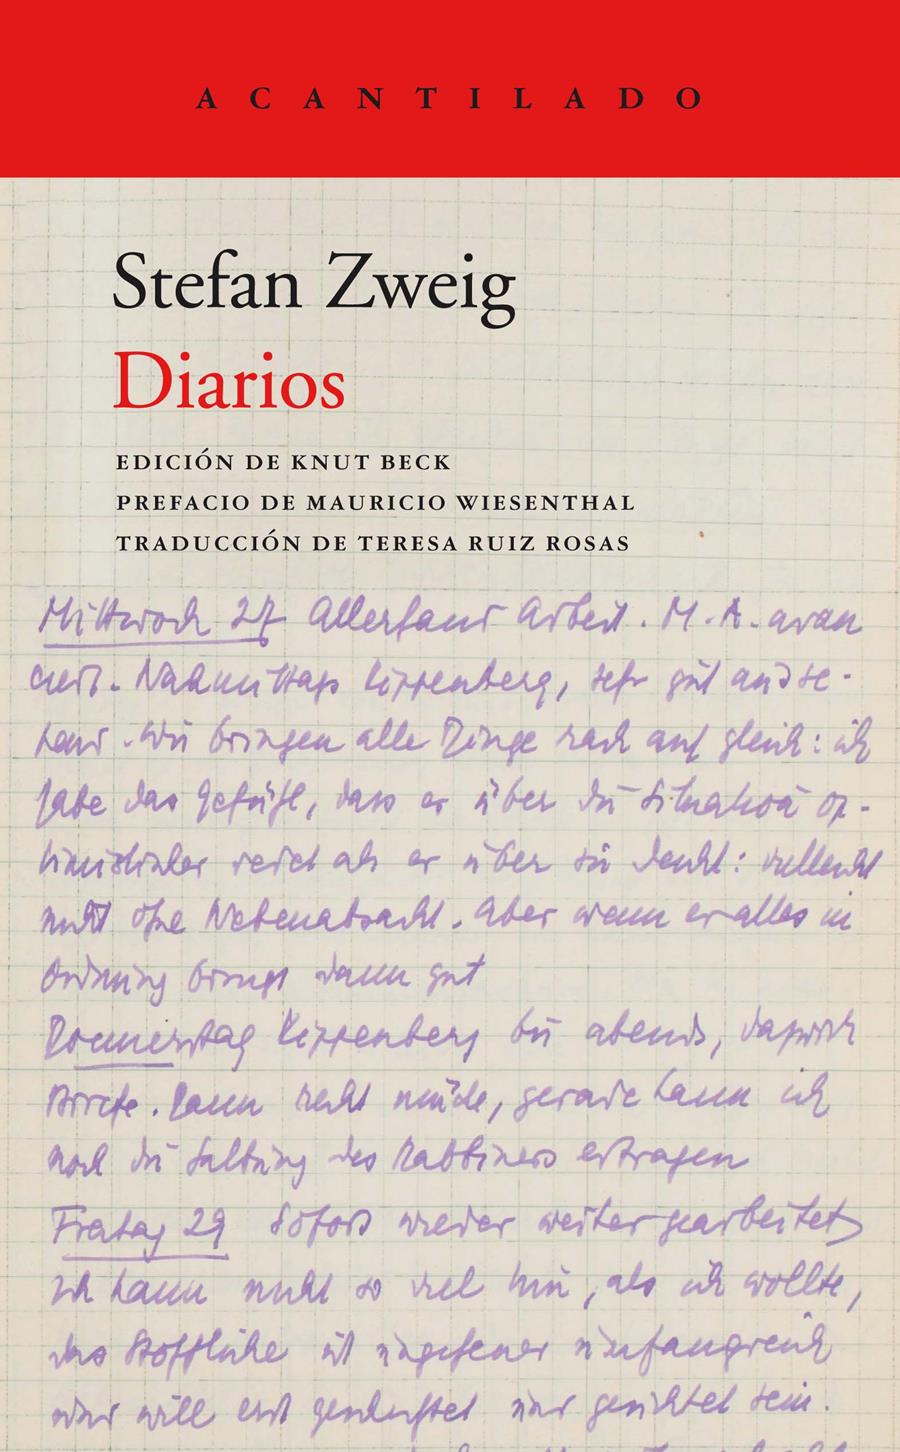 ACANTILADO
Stefan Zweig
Diarios
EDICIÓN DE KNUT BECK
PREFACIO DE MAURICIO WIESENTHAL
TRADUCCIÓN DE TERESA RUIZ ROSAS
Mittwoch 27 Allerhand Arbeit. M. A. avan
ciert. Nachmittags Kippenberg, sehr gut
Wir bringen alle Dinge rasch auf gleich: ich
habe das Gefühl, dass er über die Situation op-
timistischer als er über sie denkt: vielleicht
nicht ohne Nebenabsicht. Aber wenn er alles in
Ordnung bringt dann gut
Donnerstag Kippenberg bis abends, dazwisch
Briefe. Dann recht müde, gerade kann ich
noch die Salbung des Rabbiners ertragen
Freitag 29 Sofort wieder weiter gearbeitet
Ich kann nicht so viel tun, als ich wollte,
das Stoffliche ist ungeheuer umfangreich
und will erst gesichtet sein.